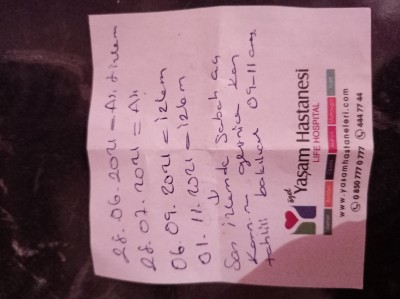 28.06.2021 = Aşı
28.07.2021 = Aşı
06.09.2021 = izlem
01.11.2021 = izlem
Son izlemde Sabah aç
Karnına gelince Kan
tahlili bakılacak 09-11 arası
özel
Yaşam Hastanesi
LIFE HOSPITAL
www.yasamhastaneleri.com
0 850 777 0 777 444 77 44